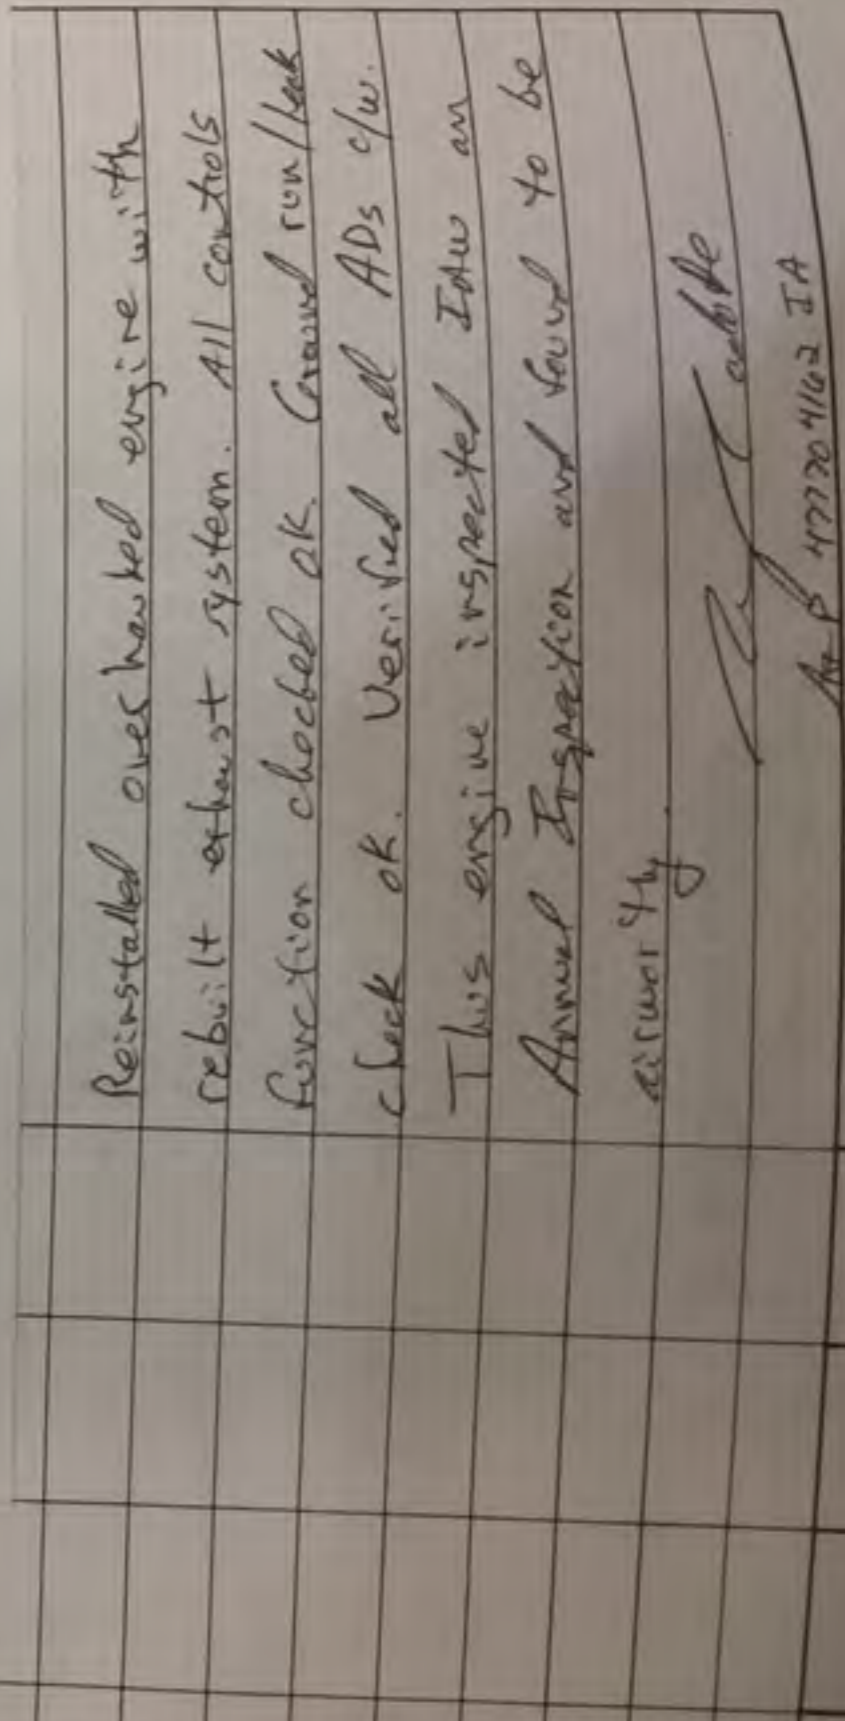 Reinstalled overhauled engine with
rebuilt exhaust system. All controls
function checked OK. Ground run/leak
check OK. Verified all ADs c/w.
This engine inspected IAW an
Annual Inspection and found to be
airworthy.
A&P 477704162 IA